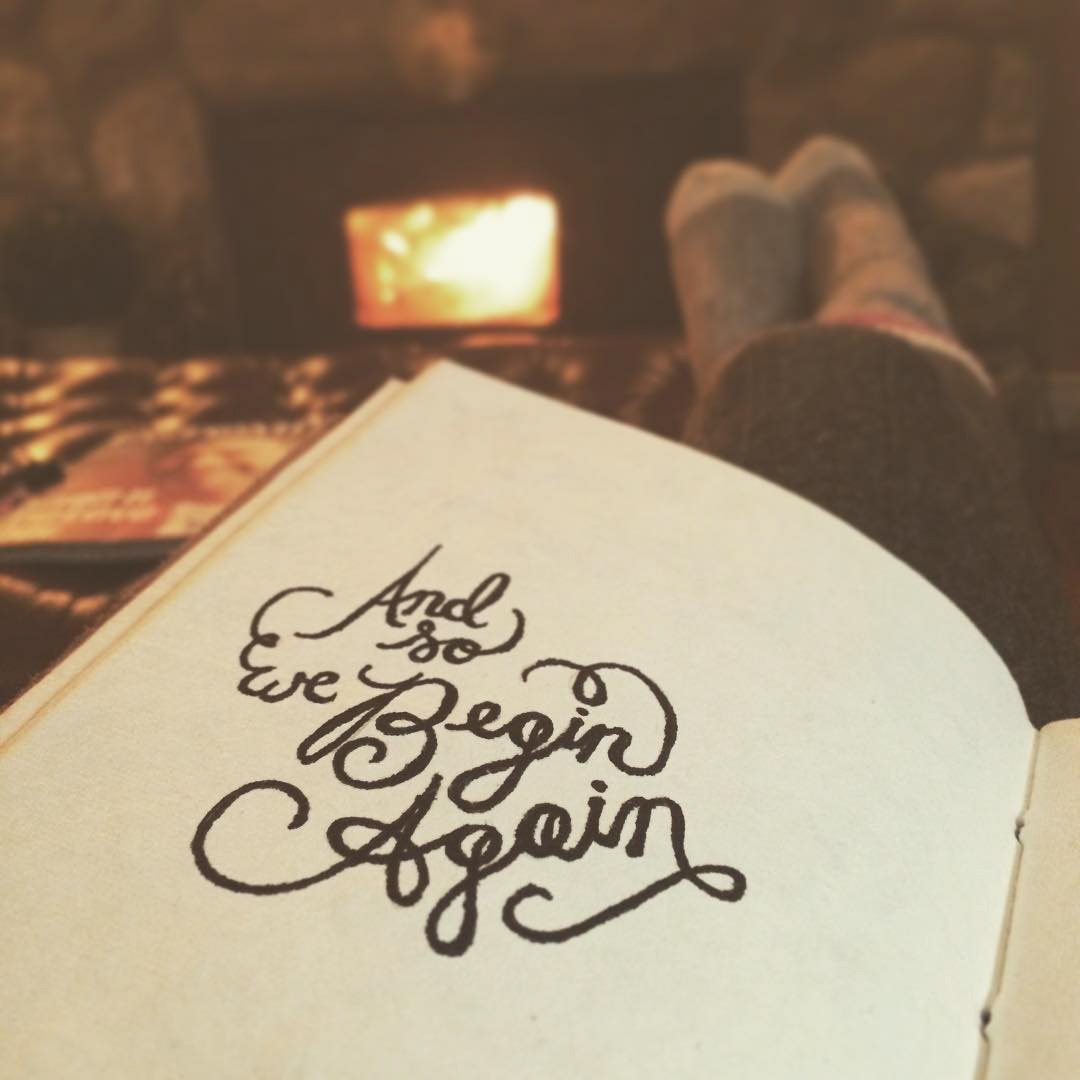 And
so
we Begin
Again